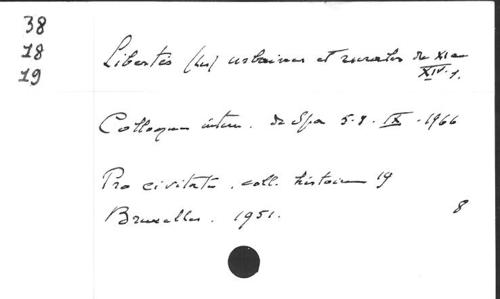 38
18
19
Libertés (Les) urbaines et rurales du XIe au
XIV s.
Colloque intern. de Spa 5-8. IX - 1966
Pro civitate. coll. histoire 19
Bruxelles. 1951.
8